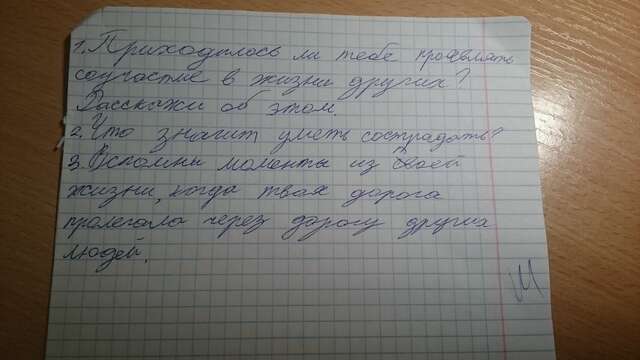 1. Приходилось ли тебе проявлять
соучастие в жизни других?
Расскажи об этом.
2. Что значит уметь сострадать?
3. Вспомни моменты из своей
жизни, когда твоя дорога
пролегала через дорогу других
людей.